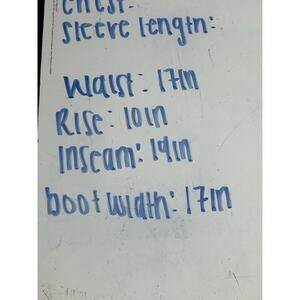 chest:
sleeve length:
waist: 17in
Rise: 10in
Inseam: 19in
boot width: 17in